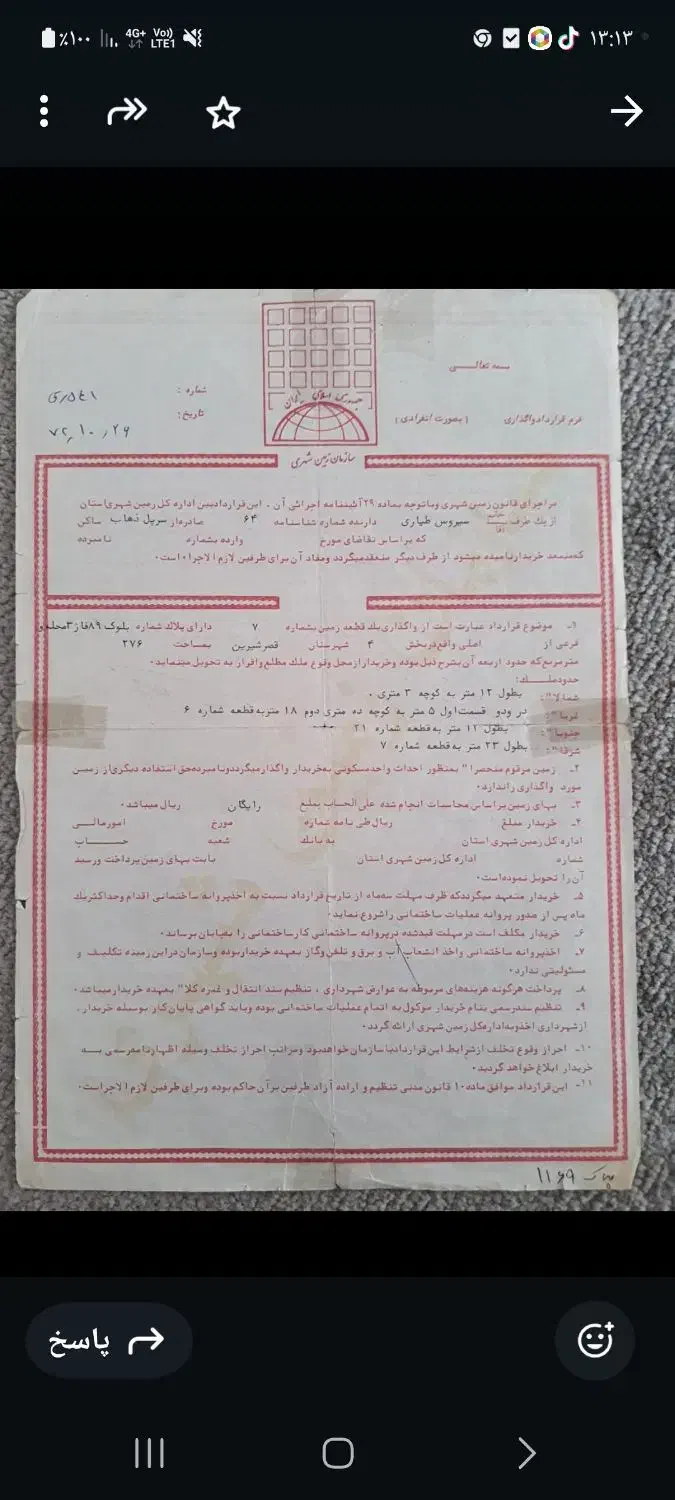 ٪۱۰۰ 4G+ Vo)) LTE1 ۱۳:۱۳
بسمه تعالــــی
فرم قرارداد واگذاری (بصورت انفرادی)
شماره :
تاریخ: ۷۲٫۱۰٫۲۶
جمهوری اسلامی ایران
سازمان زمین شهری
در اجرای قانون زمین شهری وباتوجه بماده ۲۹ آئیننامه اجرائی آن ، این قراردادبین اداره کل زمین شهری استان
از یک طرف خانم آقا سیروس طیاری دارنده شماره شناسنامه ۶۴ صادره از سرپل ذهاب ساکن
که براساس تقاضای مورخ وارده بشماره نامبرده
که منبعد خریدار نامیده میشود از طرف دیگر منعقد میگردد ومفاد آن برای طرفین لازم الاجراء است۰
۱ـ موضوع قرارداد عبارت است از واگذاری یک قطعه زمین بشماره ۷ دارای پلاک شماره بلوک ۸۹ فاز ۳ محله و
فرعی از اصلی واقع در بخش ۴ شهرستان قصرشیرین بمساحت ۲۷۶
مترمربع که حدود اربعه آن بشرح ذیل بوده وخریدار از محل وقوع ملک مطلع واقرار به تحویل مینماید۰
حدود ملـــک:
شمالا": بطول ۱۲ متر به کوچه ۳ متری ۰
غربا": در ودو قسمت اول ۵ متر به کوچه ده متری دوم ۱۸ متر به قطعه شماره ۶
جنوبا": بطول ۱۲ متر به قطعه شماره ۲۱
شرقا": بطول ۲۳ متر به قطعه شماره ۷
۲ـ زمین مرقوم منحصرا" بمنظور احداث واحد مسکونی به خریدار واگذار میگردد ونامبرده حق استفاده دیگری از زمین
مورد واگذاری را ندارد۰
۳ـ بهای زمین براساس محاسبات انجام شده علی الحساب بمبلغ رایگان ریال میباشد۰
۴ـ خریدار مبلغ ریال طی نامه شماره مورخ امور مالـــی
اداره کل زمین شهری استان به بانک شعبه حـــساب
شماره اداره کل زمین شهری استان بابت بهای زمین پرداخت ورسید
آن را تحویل نموده است۰
۵ـ خریدار متعهد میگردد که ظرف مهلت سه ماه از تاریخ قرارداد نسبت به اخذ پروانه ساختمانی اقدام وحداکثر یک
ماه پس از صدور پروانه عملیات ساختمانی را شروع نماید۰
۶ـ خریدار مکلف است در مهلت قید شده در پروانه ساختمانی کار ساختمانی را بپایان برساند۰
۷ـ اخذ پروانه ساختمانی واخذ انشعاب آب و برق و تلفن وگاز بعهده خریدار بوده وسازمان در این زمینه تکلیف و
مسئولیتی ندارد۰
۸ـ پرداخت هرگونه هزینه‌های مربوطه به عوارض شهرداری ، تنظیم سند انتقال و غیره کلا" بعهده خریدار میباشد۰
۹ـ تنظیم سند رسمی بنام خریدار موکول به اتمام عملیات ساختمانی بوده وباید گواهی پایان کار بوسیله خریدار ،
از شهرداری اخذ وبه اداره کل زمین شهری ارائه گردد۰
۱۰ـ احراز وقوع تخلف از شرایط این قرارداد با سازمان خواهد بود ومراتب احراز تخلف وسیله اظهارنامه رسمی بــه
خریدار ابلاغ خواهد گردید۰
۱۱ـ این قرارداد موافق ماده ۱۰ قانون مدنی تنظیم و اراده آزاد طرفین بر آن حاکم بوده وبرای طرفین لازم الاجراست۰
پلاک ۱۱۶۹
پاسخ